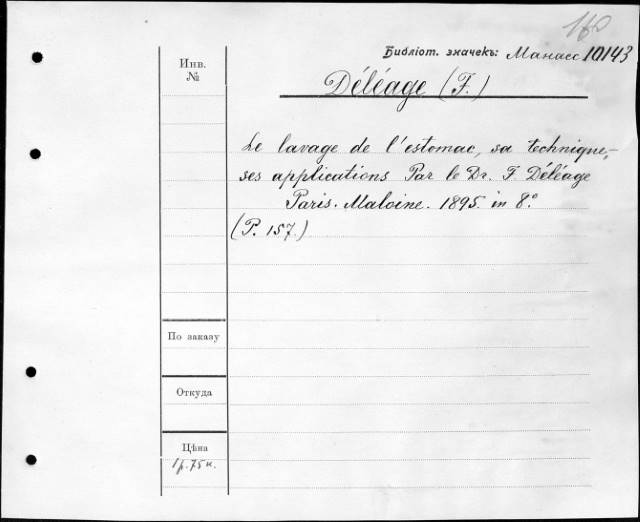 Библіот. значекъ: Манасс 10143
Инв.
№
Déléage (F.)
Le lavage de l'estomac, sa technique,-
ses applications Par le Dr. F. Déléage
Paris. Maloine. 1895. in 8.°
(P. 157.)
По заказу
Откуда
Цѣна
1р.75к.